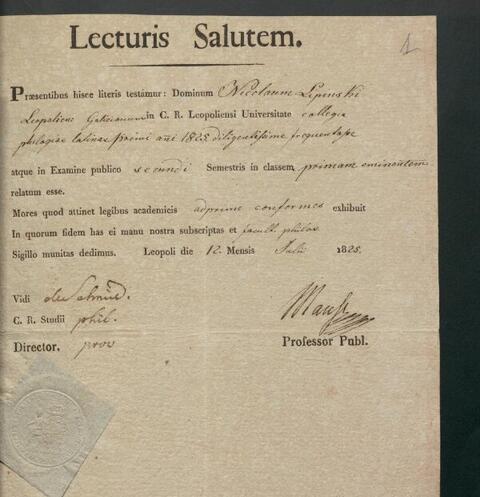 1
Lecturis Salutem.
Præsentibus hisce literis testamur: Dominum Nicolaum Lipinski
Leopoliens Galicianum in C. R. Leopoliensi Universitate collegia
philogiae latinae primi ani 1825 diligentissime frequentasse
atque in Examine publico secundi Semestris in classem primam eminentem
relatum esse.
Mores quod attinet legibus academicis adprime conformes exhibuit
In quorum fidem has ei manu nostra subscriptas et facult. philos
Sigillo munitas dedimus. Leopoli die 12. Mensis Julii 1825.
Vidi
C. R. Studii phil.
Director. prov
Mauss
Professor Publ.